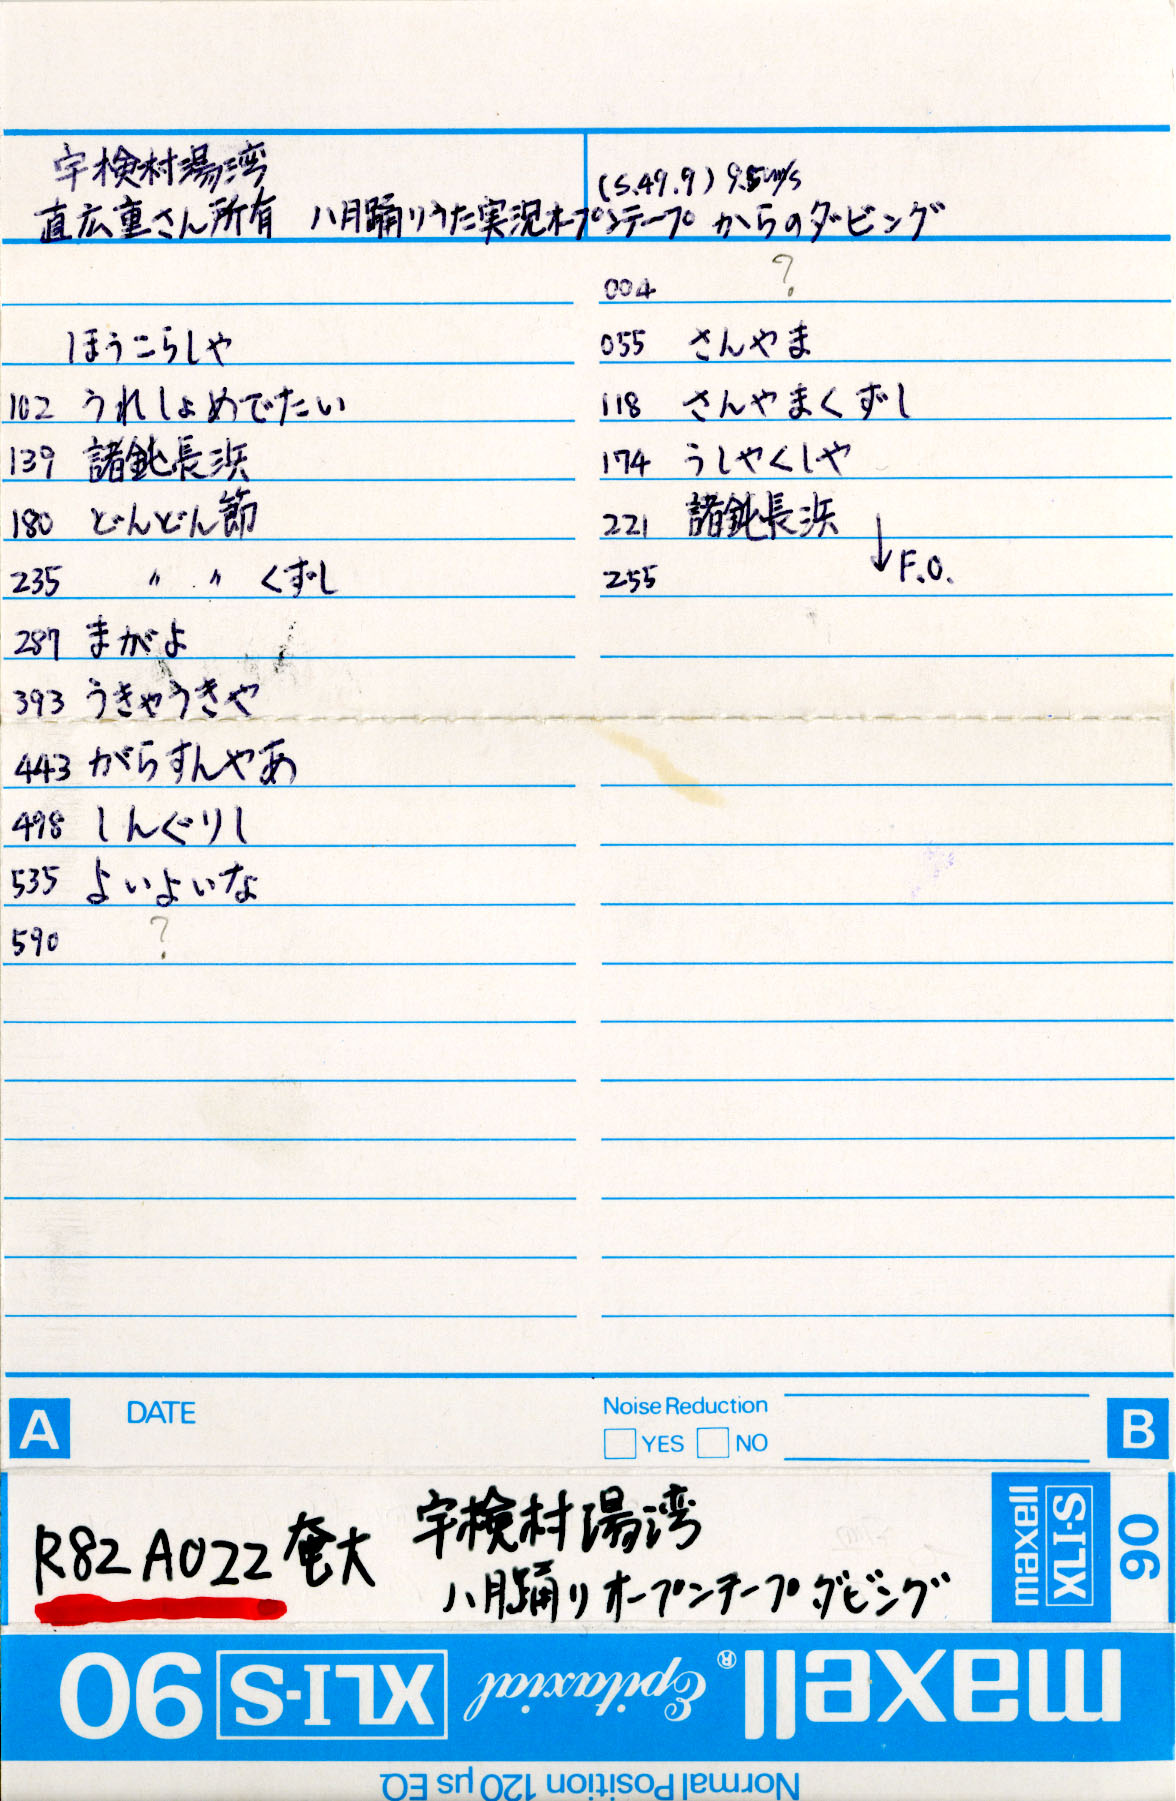 宇検村湯湾
(S.49.9) 9.5cm/s
直広重さん所有 八月踊りうた実況オープンテープからのダビング
ほうこらしゃ
102 うれしょめでたい
139 諸鈍長浜
180 どんどん節
235 〃 〃 くずし
287 まがよ
393 うきゃうきや
443 がらすんやあ
498 しんぐりし
535 よいよいな
590 ?
004 ?
055 さんやま
118 さんやまくずし
174 うしゃくしゃ
221 諸鈍長浜
255 ↓F.O.
A DATE
Noise Reduction
YES NO
B
R82 A022 奄大 宇検村湯湾
八月踊りオープンテープダビング
maxell XLI-S 90
maxell® Epitaxial XLI-S 90
Normal Position 120 μs EQ